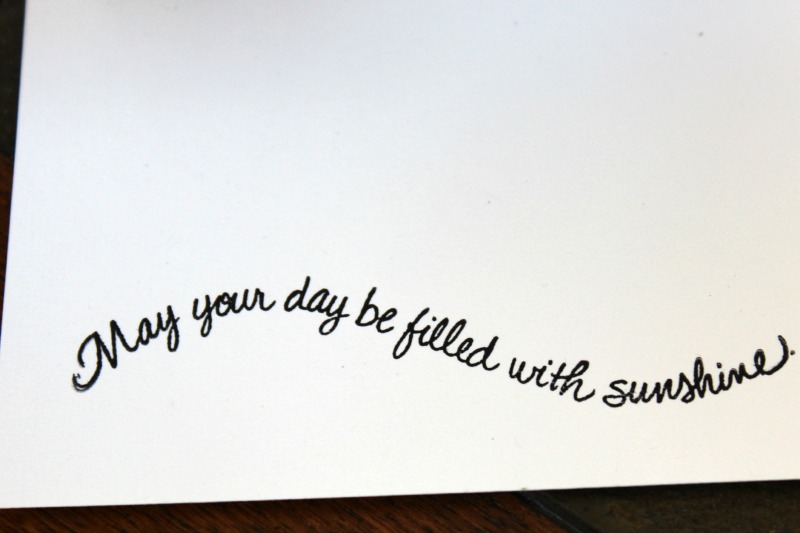 May your day be filled with sunshine.